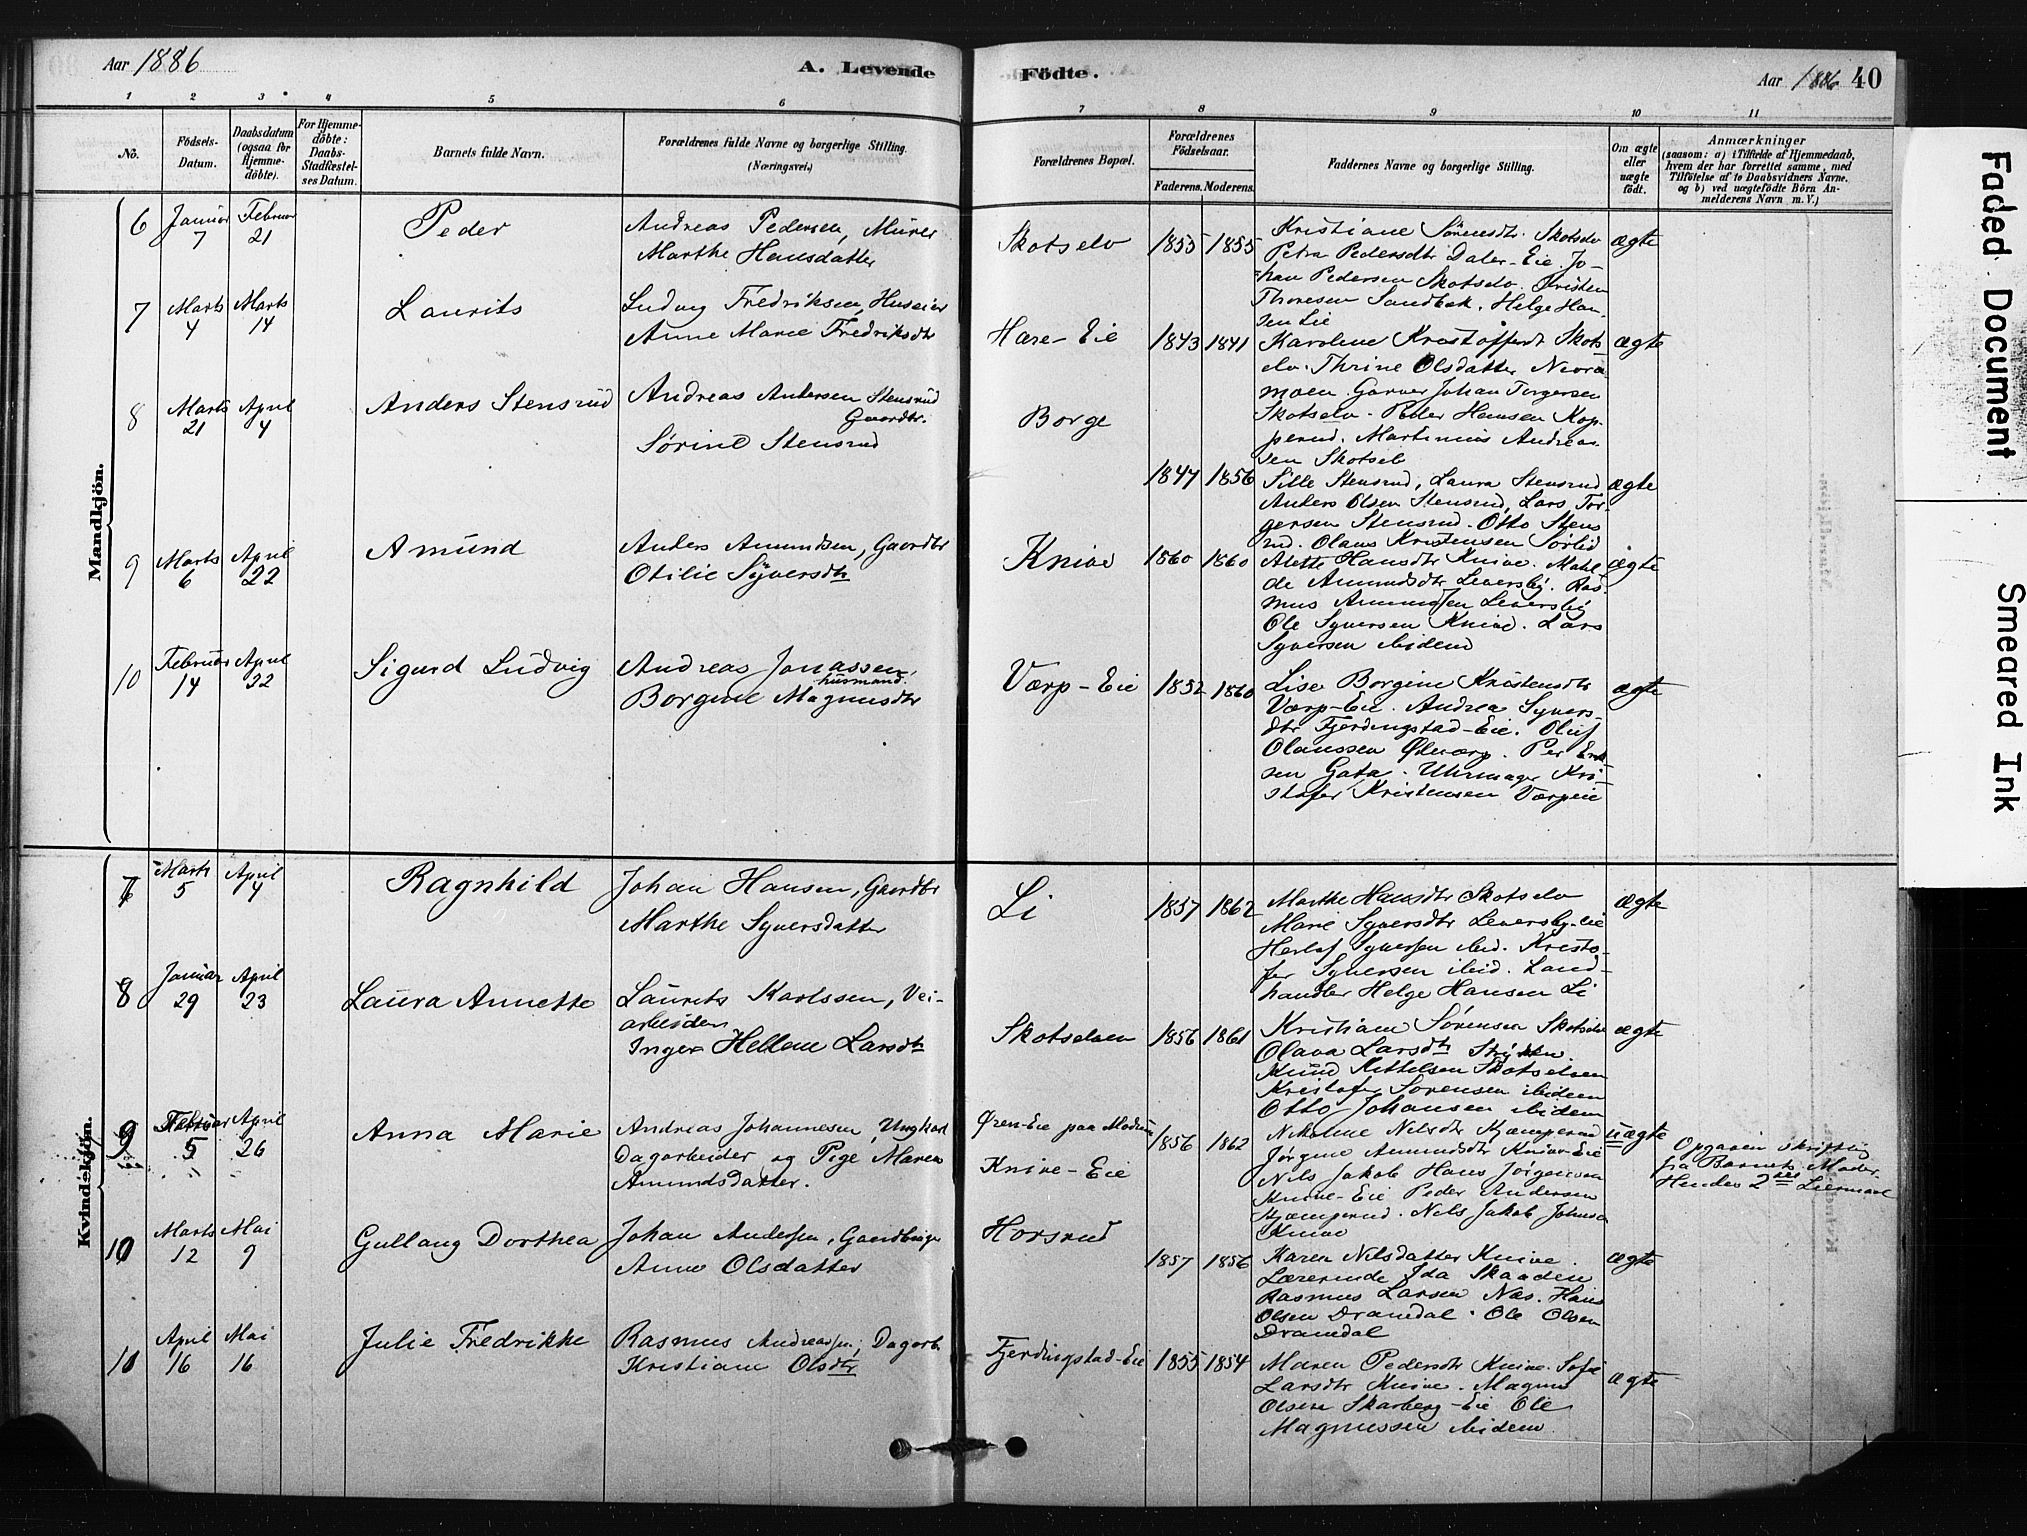 Aar 1886
A. Levende
Födte.
Aar 1886 40
1 2 3 4 5 6 7 8 9 10 11
No.
Födsels-
Datum.
Daabsdatum
(ogsaa for
Hjemme-
döbte).
For Hjemme-
döbte:
Daabs-
Stadfæstel-
ses Datum.
Barnets fulde Navn.
Forældrenes fulde Navne og borgerlige Stilling.
(Næringsvei.)
Forældrenes Bopæl.
Forældrenes
Födselsaar.
Faderens. Moderens.
Faddernes Navne og borgerlige Stilling.
Om ægte
eller
uægte
födt.
Anmærkninger
(saasom: a) i Tilfælde af Hjemmedaab,
hvem der har forrettet samme, med
Tilföielse af to Daabsvidners Navne.
og b) ved uægtefödte Börn An-
melderens Navn m. V.)
Mandkjön.
6 Januar 7 Februar 21 Peder
Andreas Pedersen, Murer
Marthe Hansdatter
Skotselv 1855 1855
Kristiane Sørensdtr. Skotselv
Petra Pedersdtr Daler-Eie. Jo-
han Pedersen Skotselv. Kristen
Thoresen Sandbæk. Helge Han-
sen Lie
ægte
7 Marts 4 Marts 14 Laurits
Ludvig Fredriksen, Huseier
Anne Marie Fredriksdtr
Hære-Eie 1843 1841
Karoline Kristoffersdt Skots-
elv. Thrine Olsdatter
moen. Garver Johan Torgersen
Skotselv. Peder Hansen Kop-
perud. Martinius Andrea-
sen Skotselv
ægte
8 Marts 21 April 4 Anders Stensrud
Andreas Andersen Stensrud
Gaardbr.
Sørine Stensrud
Borge
1847 1856
Sille Stensrud, Laura Stensrud
Anders Olsen Stensrud, Lars Tor-
gersen Stensrud. Otto Stens
rud. Olaus Kristensen Sørlid
ægte
9 Marts 6 April 22 Amund
Anders Amundsen, Gaardbr
Otilie Syversdtr
Knive 1860 1860
Alette Hansdtr Knive. Matil-
de Amundsdtr Leversby. Ras-
mus Amundsen Leversby
Ole Syversen Knive. Lars
Syversen ibidem
ægte
10 Februar 14 April 22 Sigurd Ludvig
Andreas Jonassen,
husmand.
Borgine Magnusdtr
Værp-Eie 1852 1860
Lise Borgine Kristensdtr
Værp-Eie. Andrea Syvers-
dtr Fjerdingstad-Eie. Oluf
Olaussen Øvrværp. Per Erik
sen Gata. Uhrmager Kri-
stofer Kristensen Værpeie
ægte
Kvindekjön.
7 Marts 5 April 4 Ragnhild
Johan Hansen, Gaardbr
Marthe Syversdatter
Li 1857 1862
Marthe Hansdtr Skotselv
Marie Syversdtr Leversby-eie
Herlof Syversen ibid. Kristo-
fer Syversen ibid. Land-
handler Helge Hansen Li
ægte
8 Januar 29 April 23 Laura Annette
Laurits Karlssen, Vei-
arbeider
Inger Hellene Larsdtr
Skotselven 1856 1861
Kristiane Sørensen Skotselv
Olava Larsdtr
Knud Kittelsen Skotselven
Kristofer Sørensen ibidem
Otto Johansen ibidem
ægte
9 Februar 5 April 26 Anna Marie
Andreas Johannesen, Ungkarl
Dagarbeider og Pige Maren
Amundsdatter.
Øren-Eie paa Modum
Knive-Eie
1856 1862
Nikoline Nilsdtr Kjæmperud
Jørgine Amundsdtr Knive-Eie
Nils Jakob Hans Jørgensen
Knive-Eie Peder Andersen
Kjæmperud. Nils Jakob Johnsen
Knive
uægte
Opgaven skriftlig
fra Barnets Moder.
Hendes 2det Leiermaal
10 Marts 12 Mai 9 Gullaug Dorthea
Johan Andersen, Gaardbruger
Anne Olsdatter
Horsrud
1857 1856
Karen Nilsdatter Knive.
Lærerinde Ida Skaaden
Rasmus Larsen Næs. Hans
Olsen Dramdal. Ole Olsen
Dramdal
ægte
10 April 16 Mai 16 Julie Fredrikke
Rasmus Andreassen, Dagarb.
Kristiane Olsdtr
Fjerdingstad-Eie 1855 1854
Maren Pedersdtr Knive. Sofie
Larsdtr Knive. Magnus
Olsen Skarberg-Eie Ole
Magnussen ibidem
ægte
Faded Document
Smeared Ink